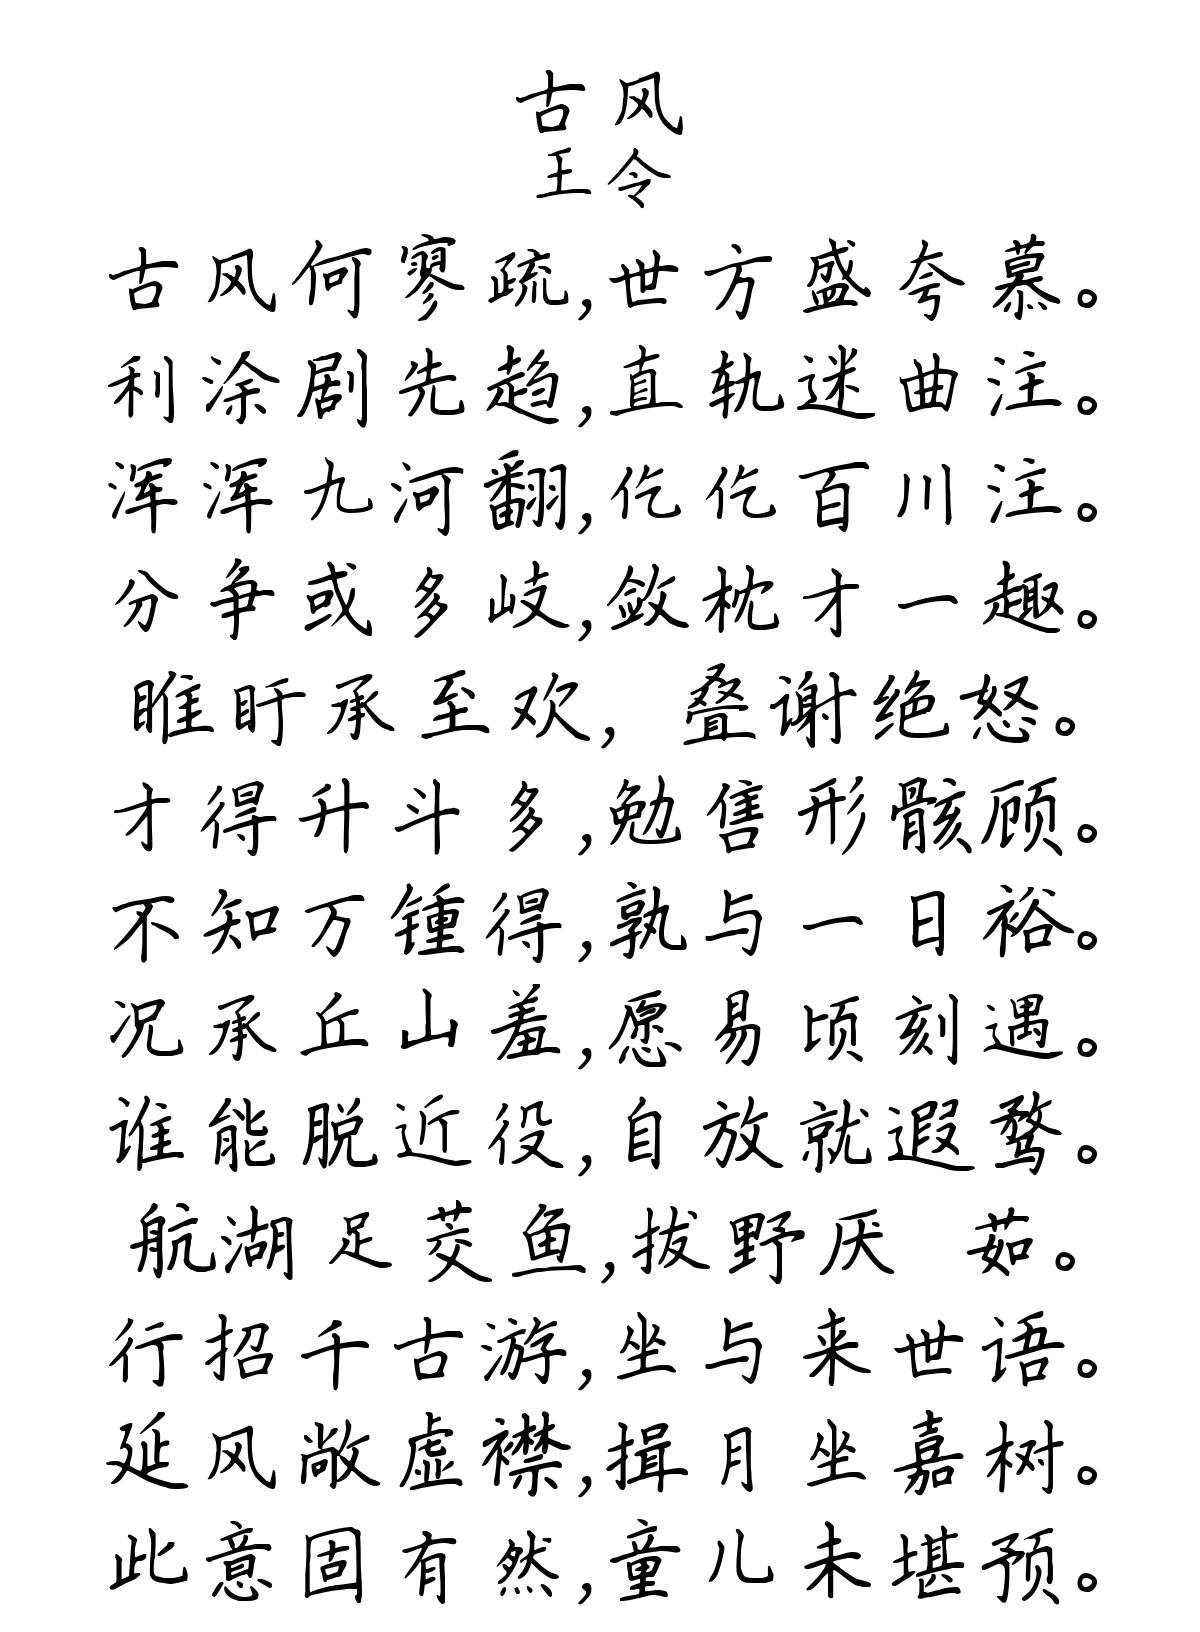 古风
王令
古风何寥疏,世方盛夸慕。
利涂剧先趋,直轨迷曲注。
浑浑九河翻,仡仡百川注。
分争或多岐,敛枕才一趣。
睢盱承至欢, 叠谢绝怒。
才得升斗多,勉售形骸顾。
不知万锺得,孰与一日裕。
况承丘山羞,愿易顷刻遇。
谁能脱近役,自放就遐骛。
航湖足茭鱼,拔野厌 茹。
行招千古游,坐与来世语。
延风敞虚襟,揖月坐嘉树。
此意固有然,童儿未堪预。